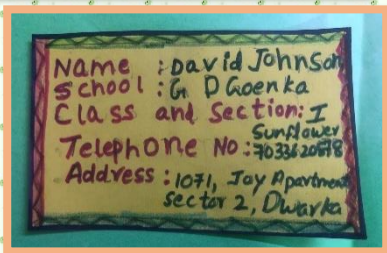 Name : David Johnson
School : G D Goenka
Class and Section: I
Sunflower
Telephone No : 7033620578
Address : 1071, Jay Apartment
Sector 2, Dwarka